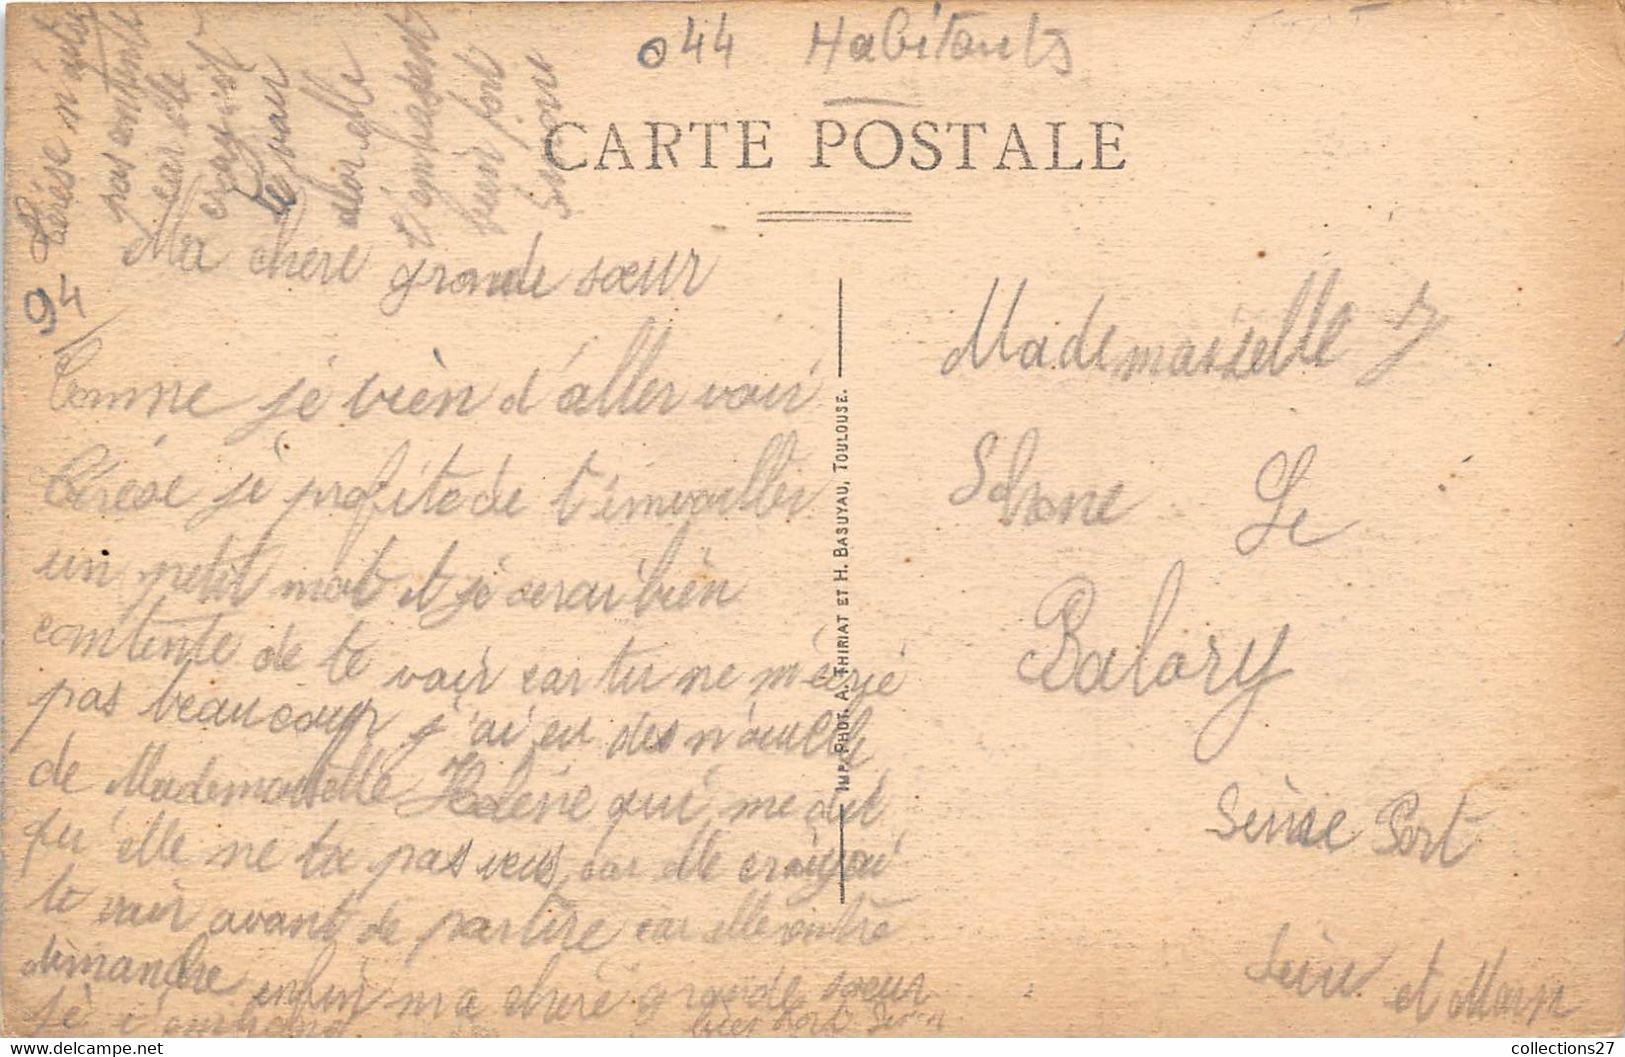 044 Habitants
CARTE POSTALE
94
Térése n'étai
pas contente
car elle
croyait
te voir
elle
t'embrassent
bien fort
Ma chere grande sœur
Comme je bièn d'aller voir
Térése je profite de t'envoiller
un petit mot et je serai bièn
contente de te voir car tu ne m'écrie
pas beaucoup j'ai eu des n'ouvelle
de Mademoiselle Hélène qui me dit
qu'elle ne ta pas vus car elle croiyai
te voir avant de partire car elle rentre
dimanche enfin ma chere grande soeur
je t'embrasse bien fort
IMP. PHOT. A. THIRIAT ET H. BASUYAU, TOULOUSE.
Mademoiselle
Le
Balory
Seine Port
Seine et Marn
collections27